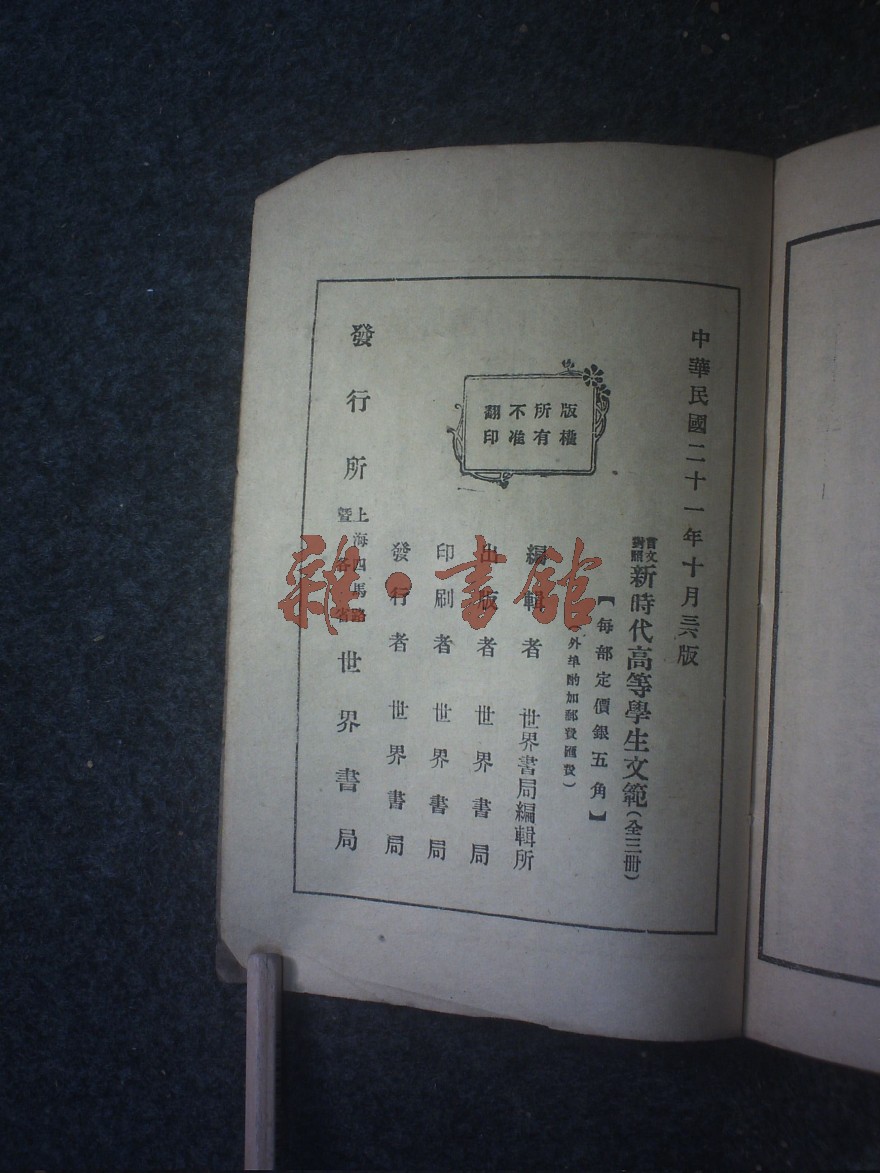 中華民國二十一年十月三六版
言文對照 新時代高等學生文範(全三冊)
【每部定價銀五角】
(外埠酌加郵費匯費)
版權
所有
不准
翻印
編輯者 世界書局編輯所
出版者 世界書局
印刷者 世界書局
發行者 世界書局
發行所 上海四馬路暨各省 世界書局
雜·書館